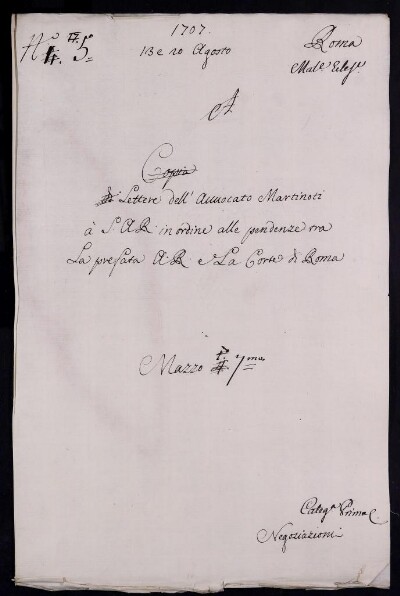 1707.
13 e 20 Agosto
Roma
Mat.e Eccl.e
N.o 5.
A
Copia
Lettere dell' Avvocato Martinoti
à S. A R. in ordine alle pendenze tra
La prefata A R. e La Corte di Roma
Mazzo
Categ.a Prima
Negoziazioni